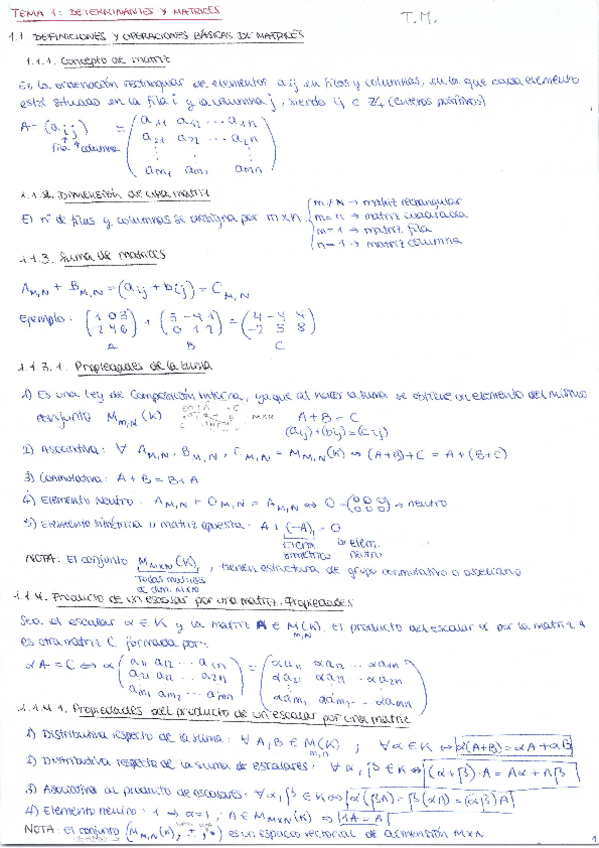 TEMA 1: DETERMINANTES Y MATRICES
T.M.
1.1 DEFINICIONES Y OPERACIONES BÁSICAS DE MATRICES
1.1.1. Concepto de matriz
Es la ordenación rectangular de elementos aij en filas y columnas, en la que cada elemento
está situado en la fila i y la columna j, siendo i,j ∈ Z+ (enteros positivos)
A = (aij) = (a11 a12 ... a1n
fila columna a21 a22 ... a2n
⋮ ⋮ ⋮
am1 am2 amn)
1.1.2. Dimensión de una matriz
El nº de filas y columnas se designa por m×n
m≠n → matriz rectangular
m=n → matriz cuadrada
m=1 → matriz fila
n=1 → matriz columna
1.1.3. Suma de matrices
AM,N + BM,N = (aij + bij) = CM,N
Ejemplo: (1 0 3 + (3 -4 1 = (4 -4 4
2 4 6) 0 1 2) -2 5 8)
A B C
1.1.3.1. Propiedades de la suma
1) Es una ley de Composición Interna, ya que al hacer la suma se obtiene un elemento del mismo
conjunto Mm,N(K) MXN A+B = C
(aij)+(bij)=(cij)
2) Asociativa: ∀ AM,N, BM,N, CM,N = MM,N(K) ⇔ (A+B)+C = A+(B+C)
3) Conmutativa: A+B = B+A
4) Elemento Neutro: AM,N + OM,N = AM,N ⇔ O = (0 0 0 0 0 0) → neutro
5) Elemento simétrico o matriz opuesta: A + (-A) = O
elem. simétrico elem. neutro
NOTA: El conjunto MMXN(K), tienen estructura de grupo conmutativo o abeliano
Todas matrices
de dim. MXN
1.1.4. Producto de un escalar por una matriz. Propiedades
Sea, el escalar α ∈ K y la matriz A ∈ M(K)m,N. El producto del escalar α por la matriz A
es otra matriz C formada por:
αA = C ⇔ α (a11 a12 ... a1n = (αa11 αa12 ... αa1n
a21 a22 ... a2n αa21 αa22 ... αa2n
am1 am2 ... amn) αam1 αam2 ... αamn)
1.1.4.1. Propiedades del producto de un escalar por una matriz
1) Distributiva respecto de la suma: ∀ A,B ∈ M(K)m,n ; ∀α ∈ K ⇔ α(A+B) = αA + αB
2) Distributiva respecto de la suma de escalares: ∀ α,β ∈ K ⇔ (α+β)·A = Aα + Aβ
3) Asociativa al producto de escalares: ∀α,β ∈ K ⇔ α(βA) = β(αA) = (αβ)A
4) Elemento neutro: 1 → α=1; A ∈ MMXN(K) ⇔ 1A = A
NOTA: El conjunto (MM,N(K), +, ·) es un espacio vectorial de dimensión MXN
1